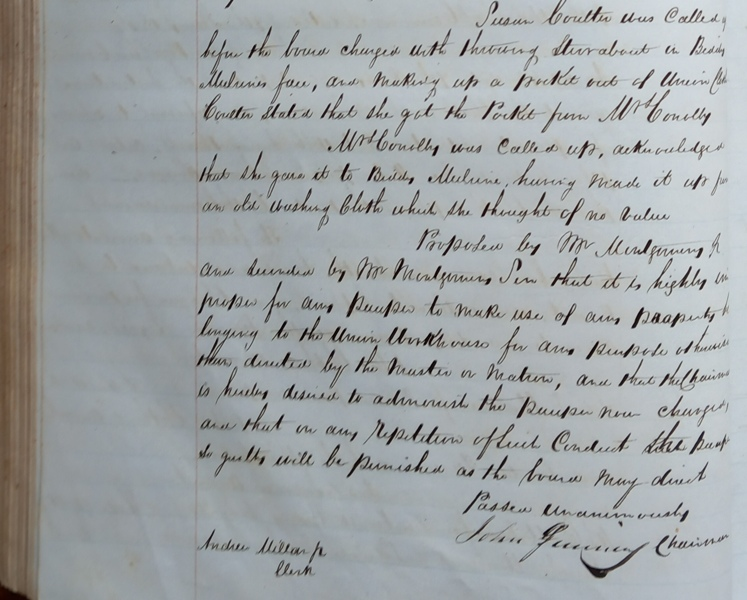 Susan Coulter was called
before the board charged with throwing Stirabout in Biddy
Melvines face, and making up a pocket out of Union
Coulter stated that she got the Pocket from Mrs Conolly
Mrs Conolly was called up, acknowledged
that she gave it to Biddy Melvine, having made it up
an old washing Cloth which she thought of no value
Proposed by Mr Montgomery
and seconded by Mr Montgomery Sen that it is highly im
proper for any pauper to make use of any property be
longing to the Union Workhouse for any purpose otherwise
than directed by the Master or Matron, and that the Chairman
is hereby desired to admonish the pauper now charged,
and that on any repetition of such Conduct the Pauper
so guilty will be punished as the board may direct
Passed unanimously
John Chairman
Andrew Millar Jr
Clerk